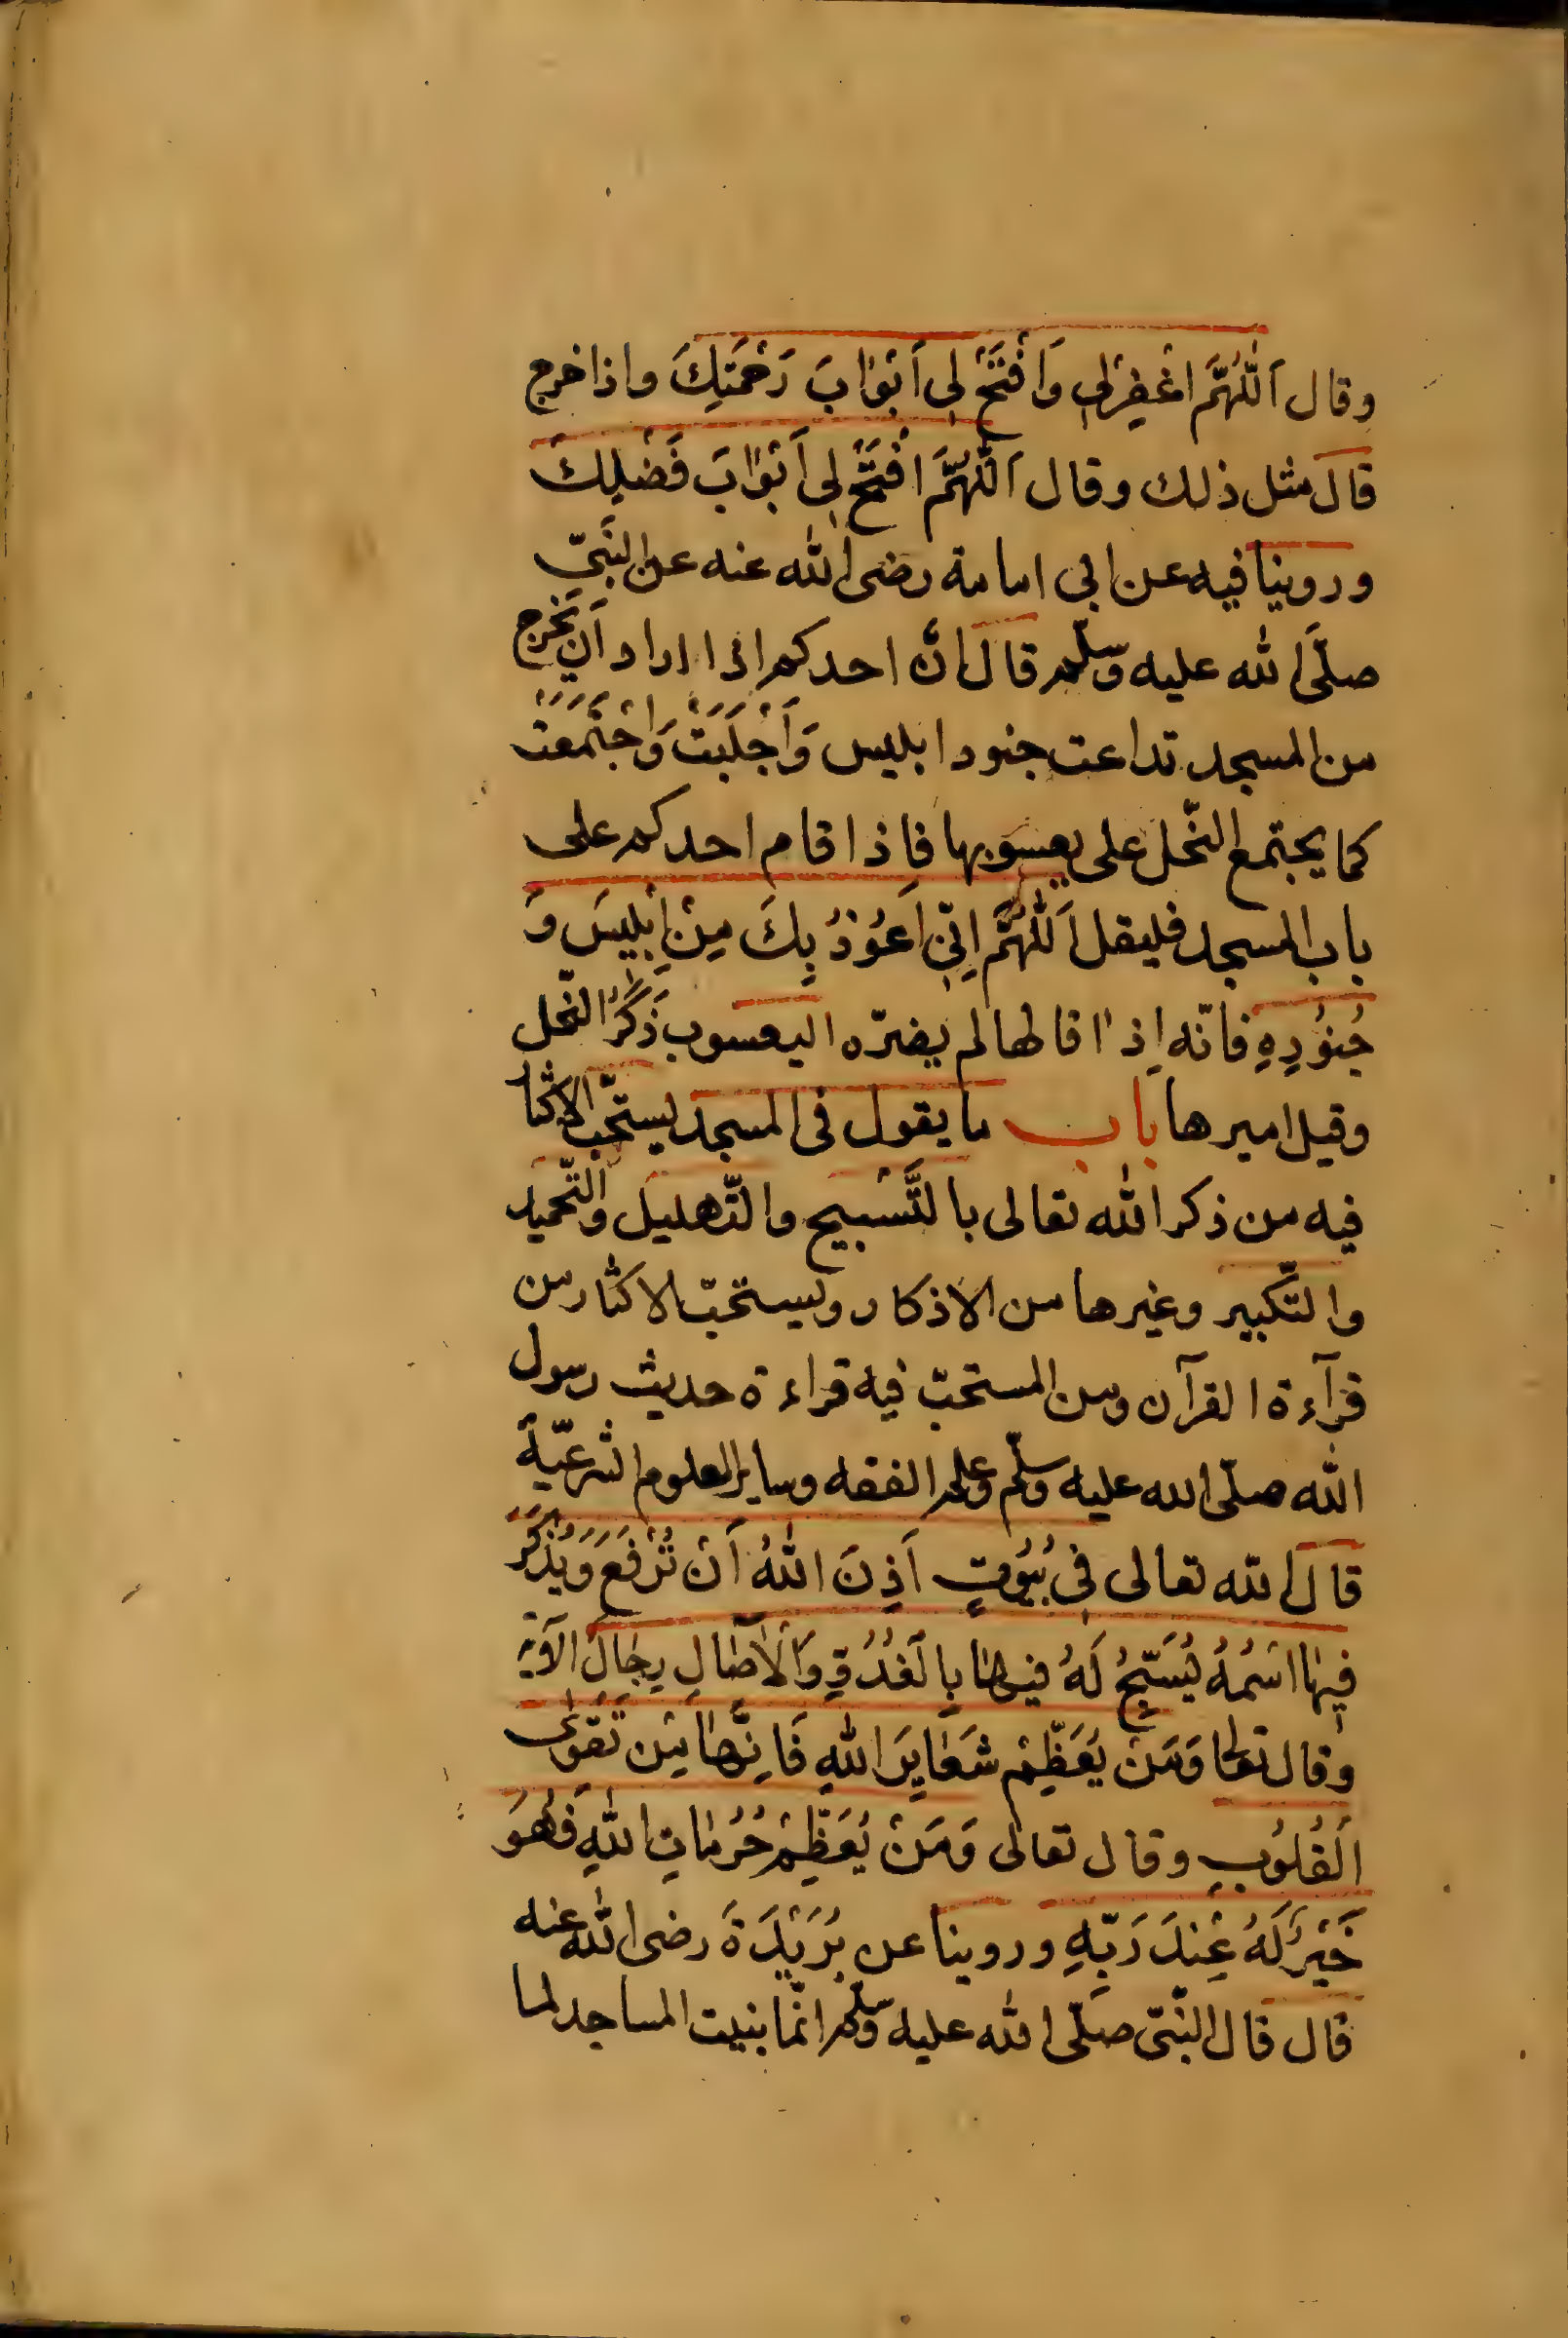 وقال اَللّٰهُمَّ اغْفِرْلِى وَافْتَحْ لِى اَبْوٰابَ رَحْمَتِكَ واذا خرج
قالَ مثل ذلك وقال اَللّٰهُمَّ افْتَحْ لِى اَبْوٰابَ فَضْلِكَ
وروينا فيه عن ابى امامة رضى الله عنه عن النَبىّ
صلَّى الله عليه وسلّم قالَ انّ احدكم اذا اراد اَن يخرج
من المسجد تداعت جنود ابليس وَاَجْلَبَتْ وَاجْتَمَعَتْ
كما يجتمع النّحل على يعسوبها فاِذا قام احدكم على
باب المسجد فليقل اَللّٰهُمَّ اِنّى اَعُوْذُ بِكَ مِنْ اِبْلِيسَ وَ
جُنُوْدِهِ فانّه اِذٰا قالها لم يضرّه اليعسوب ذَكَرُ النّحل
وقيل اميرها باب ما يقول فى المسجد يستحّب الاكثا
فيه من ذكر الله تعالى بالتَّسْبيح والتّهليل والتّحميد
والتّكبير وغيرها من الاذكار ويستحبّ الاكثار من
قرآءة القرآن ومن المستحبّ فيه قراءة حديث رسول
الله صلّى الله عليه وسلّم وعلم الفقه وساير العلوم الشرعيّة
قالَ الله تعالى فِى بُيُوْتٍ اَذِنَ اللّٰهُ اَنْ تُرْفَعَ وَيُذْكَرَ
فِيهٰا اسْمُهُ يُسَبِّحُ لَهُ فيهٰا بِالْغُدُوِّ وَالْاٰصٰالِ رِجٰالٌ الآية
وقال تعالى وَمَنْ يُعَظِّمْ شَعٰايِرَ اللّٰهِ فَاِنَّهٰا مِنْ تَقْوَى
الْقُلُوْبِ وقال تعالى وَمَنْ يُعَظِّمْ حُرُمٰاتِ اللّٰهِ فَهُوَ
خَيْرٌ لَهُ عِنْدَ رَبِّهِ وروينا عن بُرَيْدَةَ رضى الله عنه
قال قال النّبىّ صلّى الله عليه وسلّم انّما بنيت المساجد لما